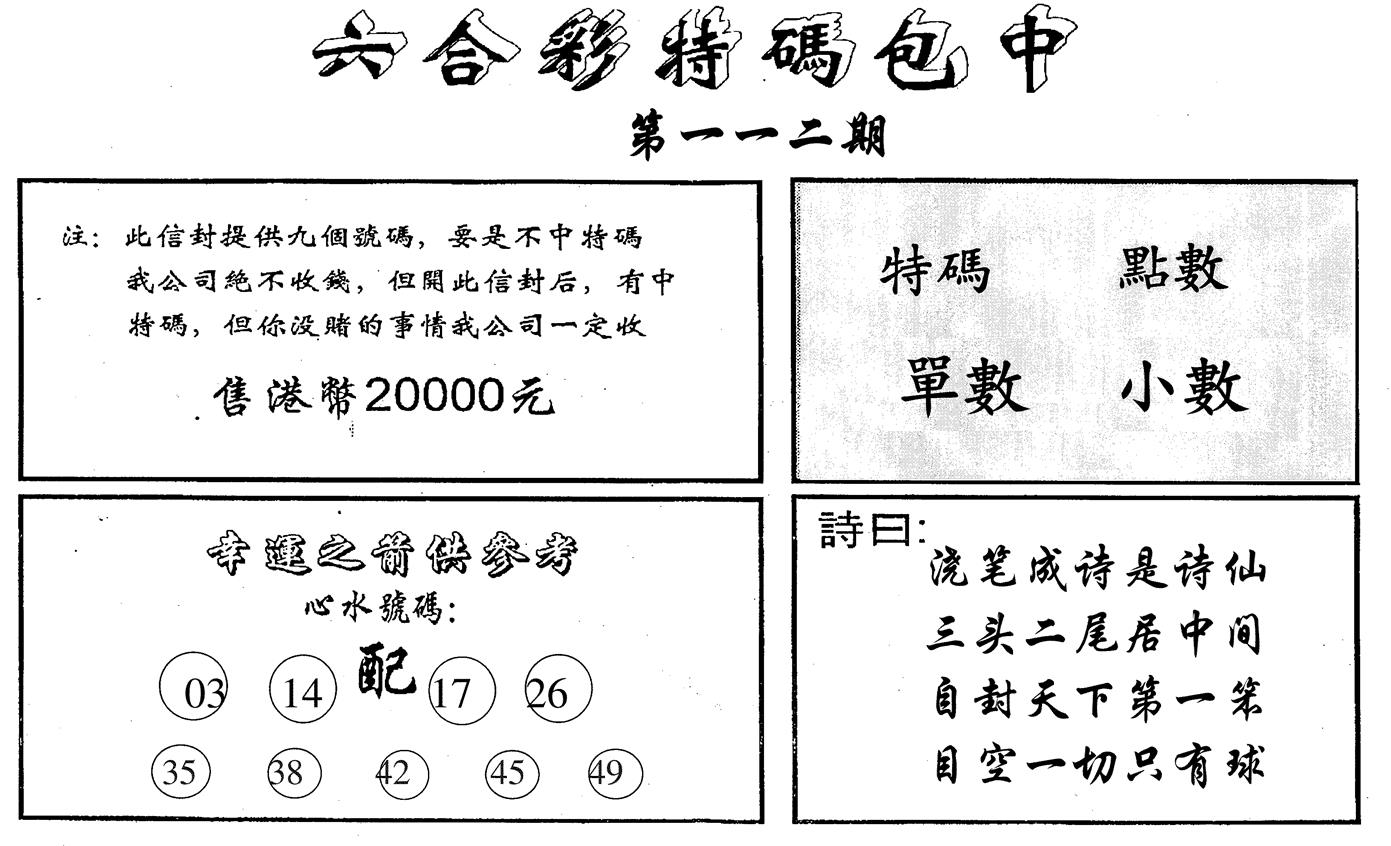 六合彩特碼包中
第一一二期
注：此信封提供九個號碼，要是不中特碼
我公司絕不收錢，但開此信封后，有中
特碼，但你没賭的事情我公司一定收
售港幣20000元
特碼 點數
單數 小數
幸運之箭供參考
心水號碼：
03 14 配 17 26
35 38 42 45 49
詩曰：
浇笔成诗是诗仙
三头二尾居中间
自封天下第一笨
目空一切只有球